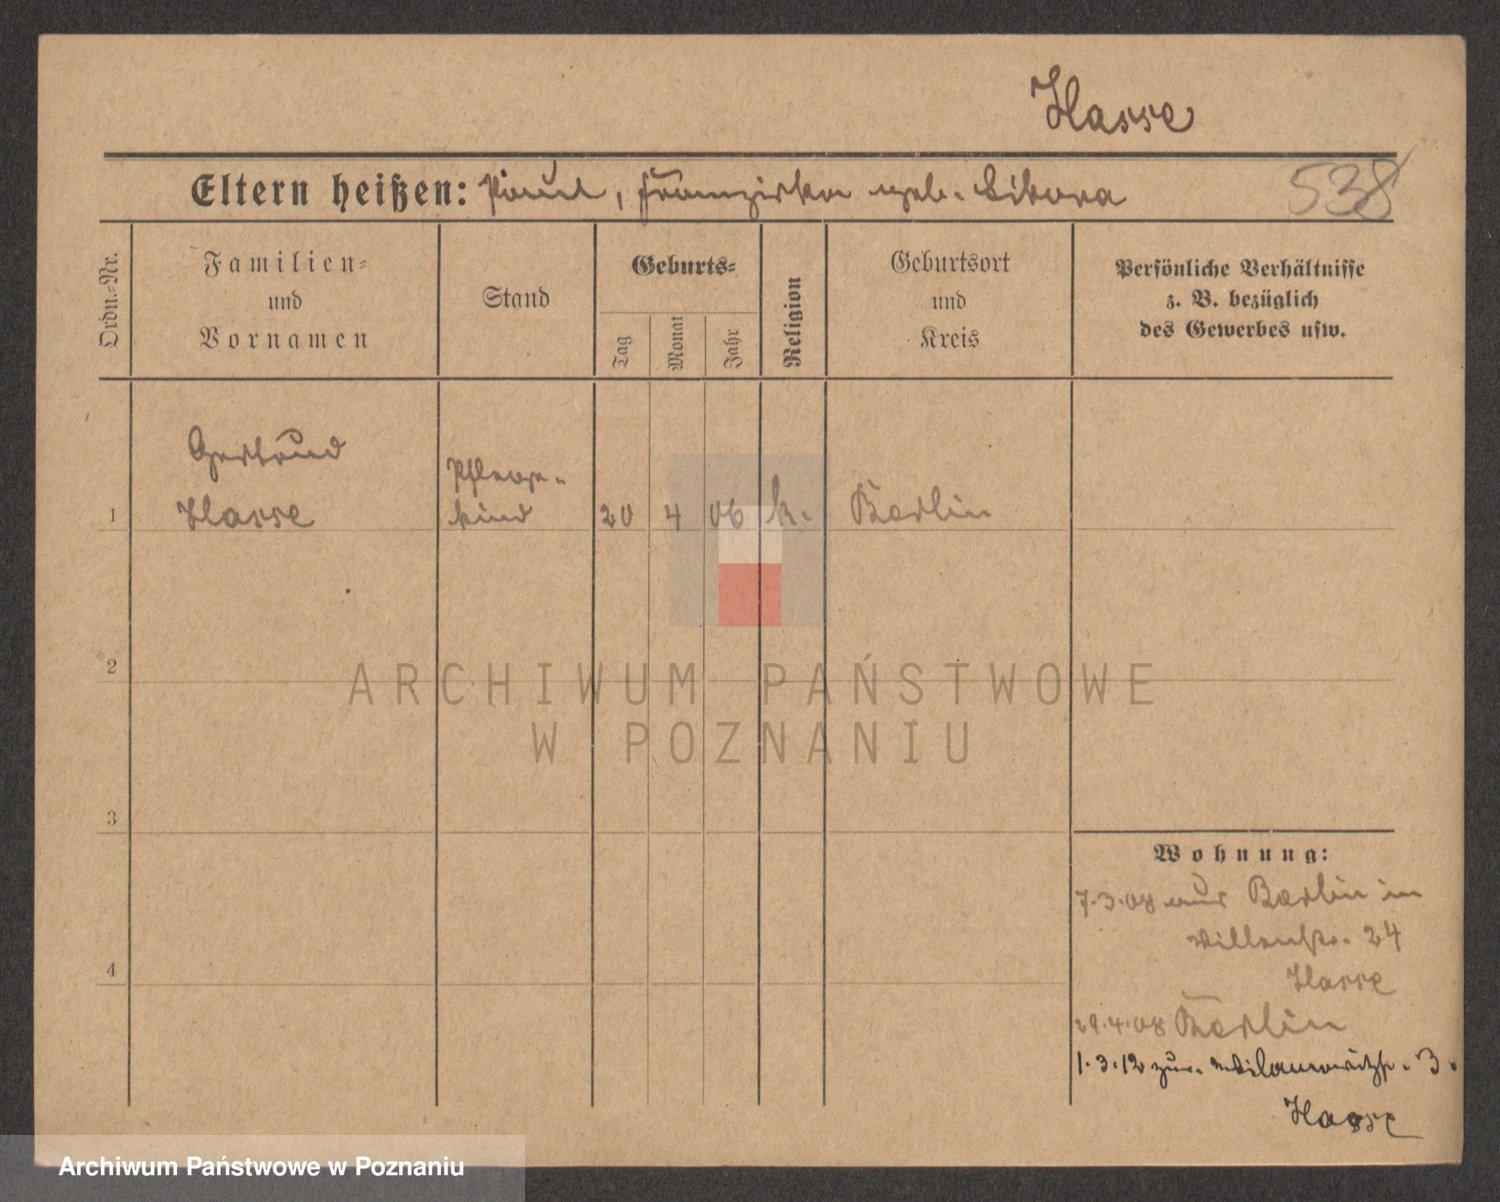 Hasse
Eltern heißen: Paul, Franziska geb. Sikora
538
Ordn.-Nr.
Familien-
und
Vornamen
Stand
Geburts-
Tag
Monat
Jahr
Religion
Geburtsort
und
Kreis
Persönliche Verhältnisse
z. B. bezüglich
des Gewerbes usw.
Gertrud
Pflege-
1 Hasse kind 20 4 06 k. Berlin
2
ARCHIWUM PAŃSTWOWE
W POZNANIU
3
Wohnung:
7.3.08 aus Berlin in
24
Hasse
4
29.4.08 Berlin
1.3.12 zur. 3.
Hasse
Archiwum Państwowe w Poznaniu